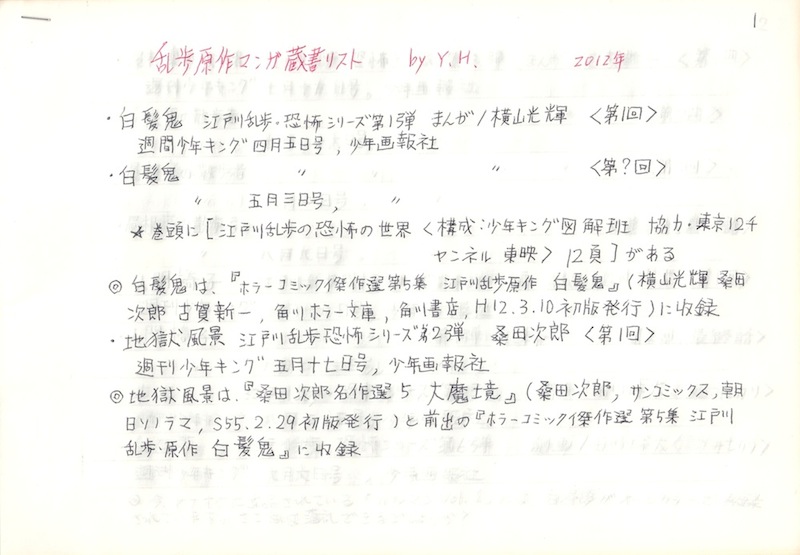 1
乱歩原作マンガ蔵書リスト by Y.H. 2012年
・白髪鬼 江戸川乱歩・恐怖シリーズ第1弾 まんが/横山光輝 <第1回>
週間少年キング四月五日号,少年画報社
・白髪鬼 〃 〃 <第?回>
〃 五月三日号, 〃
*巻頭に[江戸川乱歩の恐怖の世界<構成:少年キング図解班 協力・東京12チ
ャンネル 東映> 12頁]がある
◎白髪鬼は、『ホラーコミック傑作選第5集 江戸川乱歩原作 白髪鬼』(横山光輝 桑田
次郎 古賀新一,角川ホラー文庫,角川書店,H12.3.10初版発行)に収録
・地獄風景 江戸川乱歩恐怖シリーズ第2弾 桑田次郎 <第1回>
週刊少年キング 五月十七日号,少年画報社
◎地獄風景は、『桑田次郎名作選5 大魔境』(桑田次郎,サンコミックス,朝
日ソノラマ,S55.2.29初版発行)と前出の『ホラーコミック傑作選 第5集 江戸川
乱歩・原作 白髪鬼』に収録